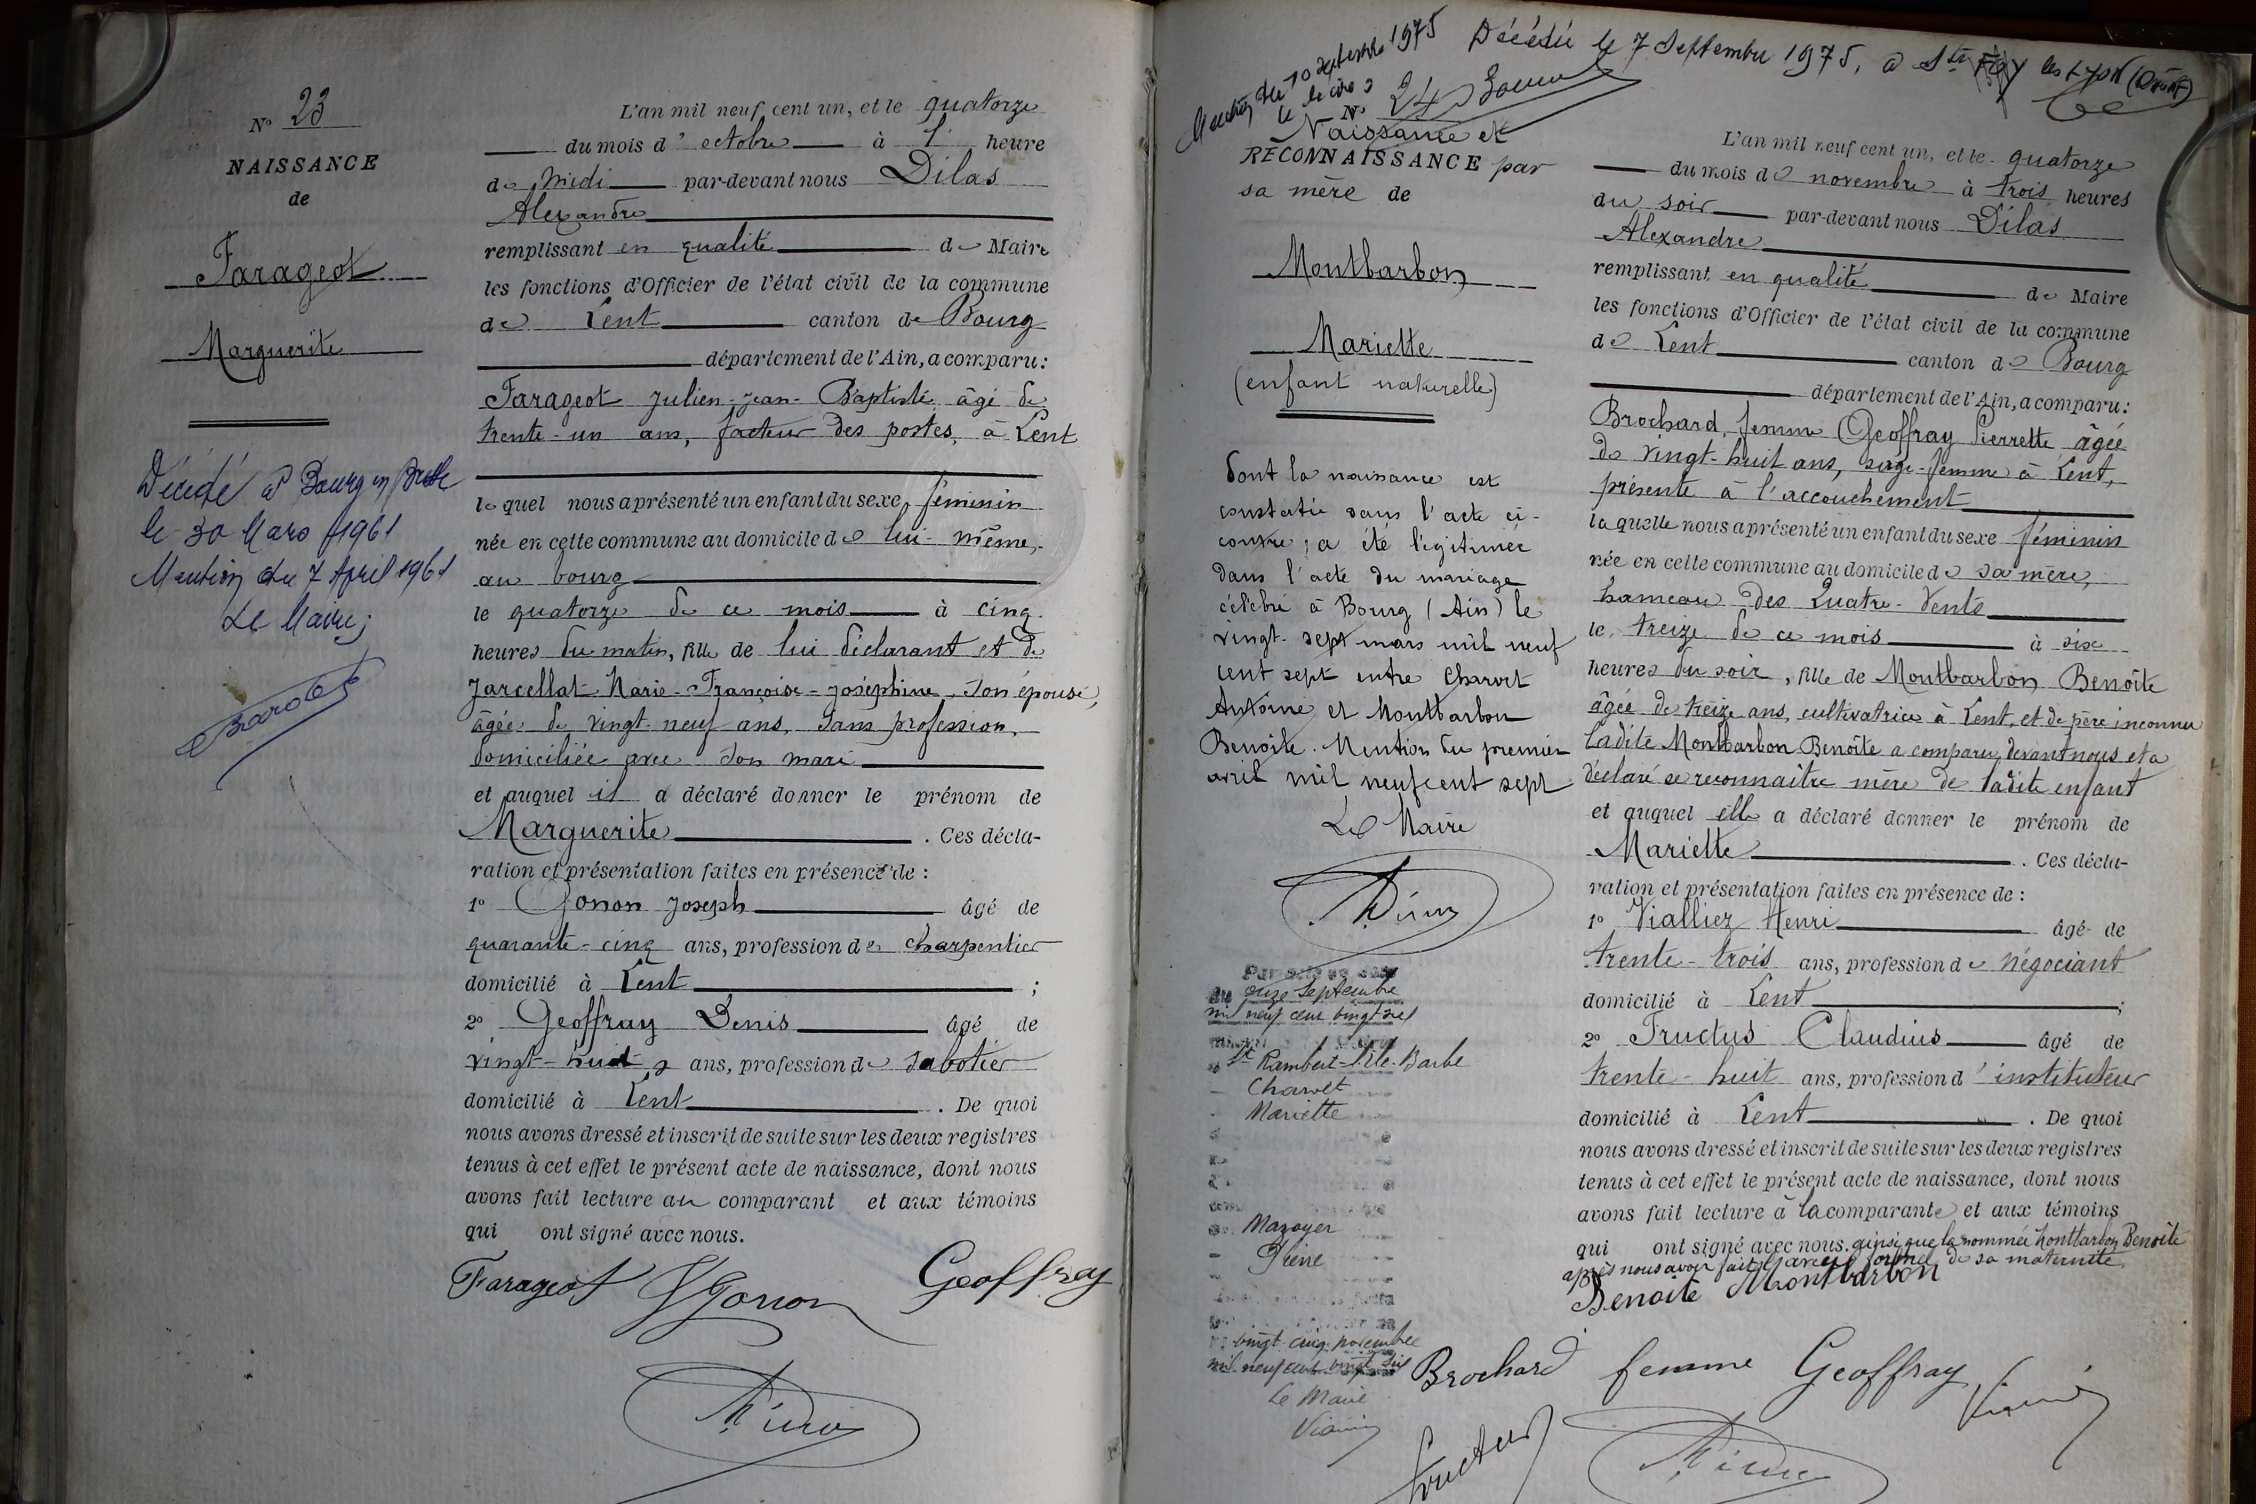 N° 23
NAISSANCE
de
Farageot
Marguerite
Décédé à Bourg en Bresse
le 30 Mars 1961
Mention du 7 April 1961
Le Maire;
L'an mil neuf cent un, et le quatorze
du mois d'octobre à 1 heure
de midi par-devant nous Dilas
Alexandre
remplissant en qualité de Maire
les fonctions d'Officier de l'état civil de la commune
de Lent canton de Bourg
département de l'Ain, a comparu:
Farageot Julien-Jean-Baptiste âgé de
trente-un ans, facteur des postes, à Lent
lequel nous a présenté un enfant du sexe féminin
née en cette commune au domicile de lui-même,
au bourg
le quatorze de ce mois à cinq
heures du matin, fille de lui déclarant et de
Jarcellat Marie-Françoise-Joséphine, son épouse,
âgée de vingt-neuf ans, sans profession,
domiciliée avec son mari
et auquel il a déclaré donner le prénom de
Marguerite. Ces décla-
ration et présentation faites en présence de :
1° Gonon Joseph âgé de
quarante-cinq ans, profession de charpentier
domicilié à Lent ;
2° Geoffray Denis âgé de
vingt-huit ans, profession de sabotier
domicilié à Lent. De quoi
nous avons dressé et inscrit de suite sur les deux registres
tenus à cet effet le présent acte de naissance, dont nous
avons fait lecture au comparant et aux témoins
qui ont signé avec nous.
Farageot Gonon Geoffray
Décédée le 7 Septembre 1975, à Ste Foy les Lyon
Mention du 10 septembre 1975
N° 24
Naissance et
RECONNAISSANCE par
sa mère de
Montbarbon
Mariette
(enfant naturelle)
dont la naissance est
constatée dans l'acte ci-
contre, a été légitimée
dans l'acte du mariage
célébré à Bourg (Ain) le
vingt-sept mars mil neuf
cent sept entre Charvet
Antoine et Montbarbon
Benoîte. Mention du premier
avril mil neuf cent sept
Le Maire
onze Septembre
mil neuf cent vingt six
St Rambert-l'Ile-Barbe
Charvet
Mariette
Mazoyer
Pierre
vingt-cinq novembre
mil neuf cent vingt six
Le Maire
L'an mil neuf cent un, et le quatorze
du mois de novembre à trois heures
du soir par-devant nous Dilas
Alexandre
remplissant en qualité de Maire
les fonctions d'Officier de l'état civil de la commune
de Lent canton de Bourg
département de l'Ain, a comparu:
Brochard, femme Geoffray Pierrette âgée
de vingt-huit ans, sage-femme à Lent,
présente à l'accouchement
laquelle nous a présenté un enfant du sexe féminin
née en cette commune au domicile de sa mère,
hameau des Quatre-Vents
le treize de ce mois à six
heures du soir, fille de Montbarbon Benoîte
âgée de treize ans, cultivatrice à Lent, et de père inconnu
Ladite Montbarbon Benoîte a comparu devant nous et a
déclaré se reconnaître mère de ladite enfant
et auquel elle a déclaré donner le prénom de
Mariette. Ces décla-
ration et présentation faites en présence de :
1° Vialliez Henri âgé de
trente-trois ans, profession de négociant
domicilié à Lent ;
2° Fructus Claudius âgé de
trente-huit ans, profession d'instituteur
domicilié à Lent. De quoi
nous avons dressé et inscrit de suite sur les deux registres
tenus à cet effet le présent acte de naissance, dont nous
avons fait lecture à la comparante et aux témoins
qui ont signé avec nous. ainsi que la nommée Montbarbon Benoîte
après nous avoir fait l'aveu formel de sa maternité.
Benoîte Montbarbon
Brochard femme Geoffray
Fructus